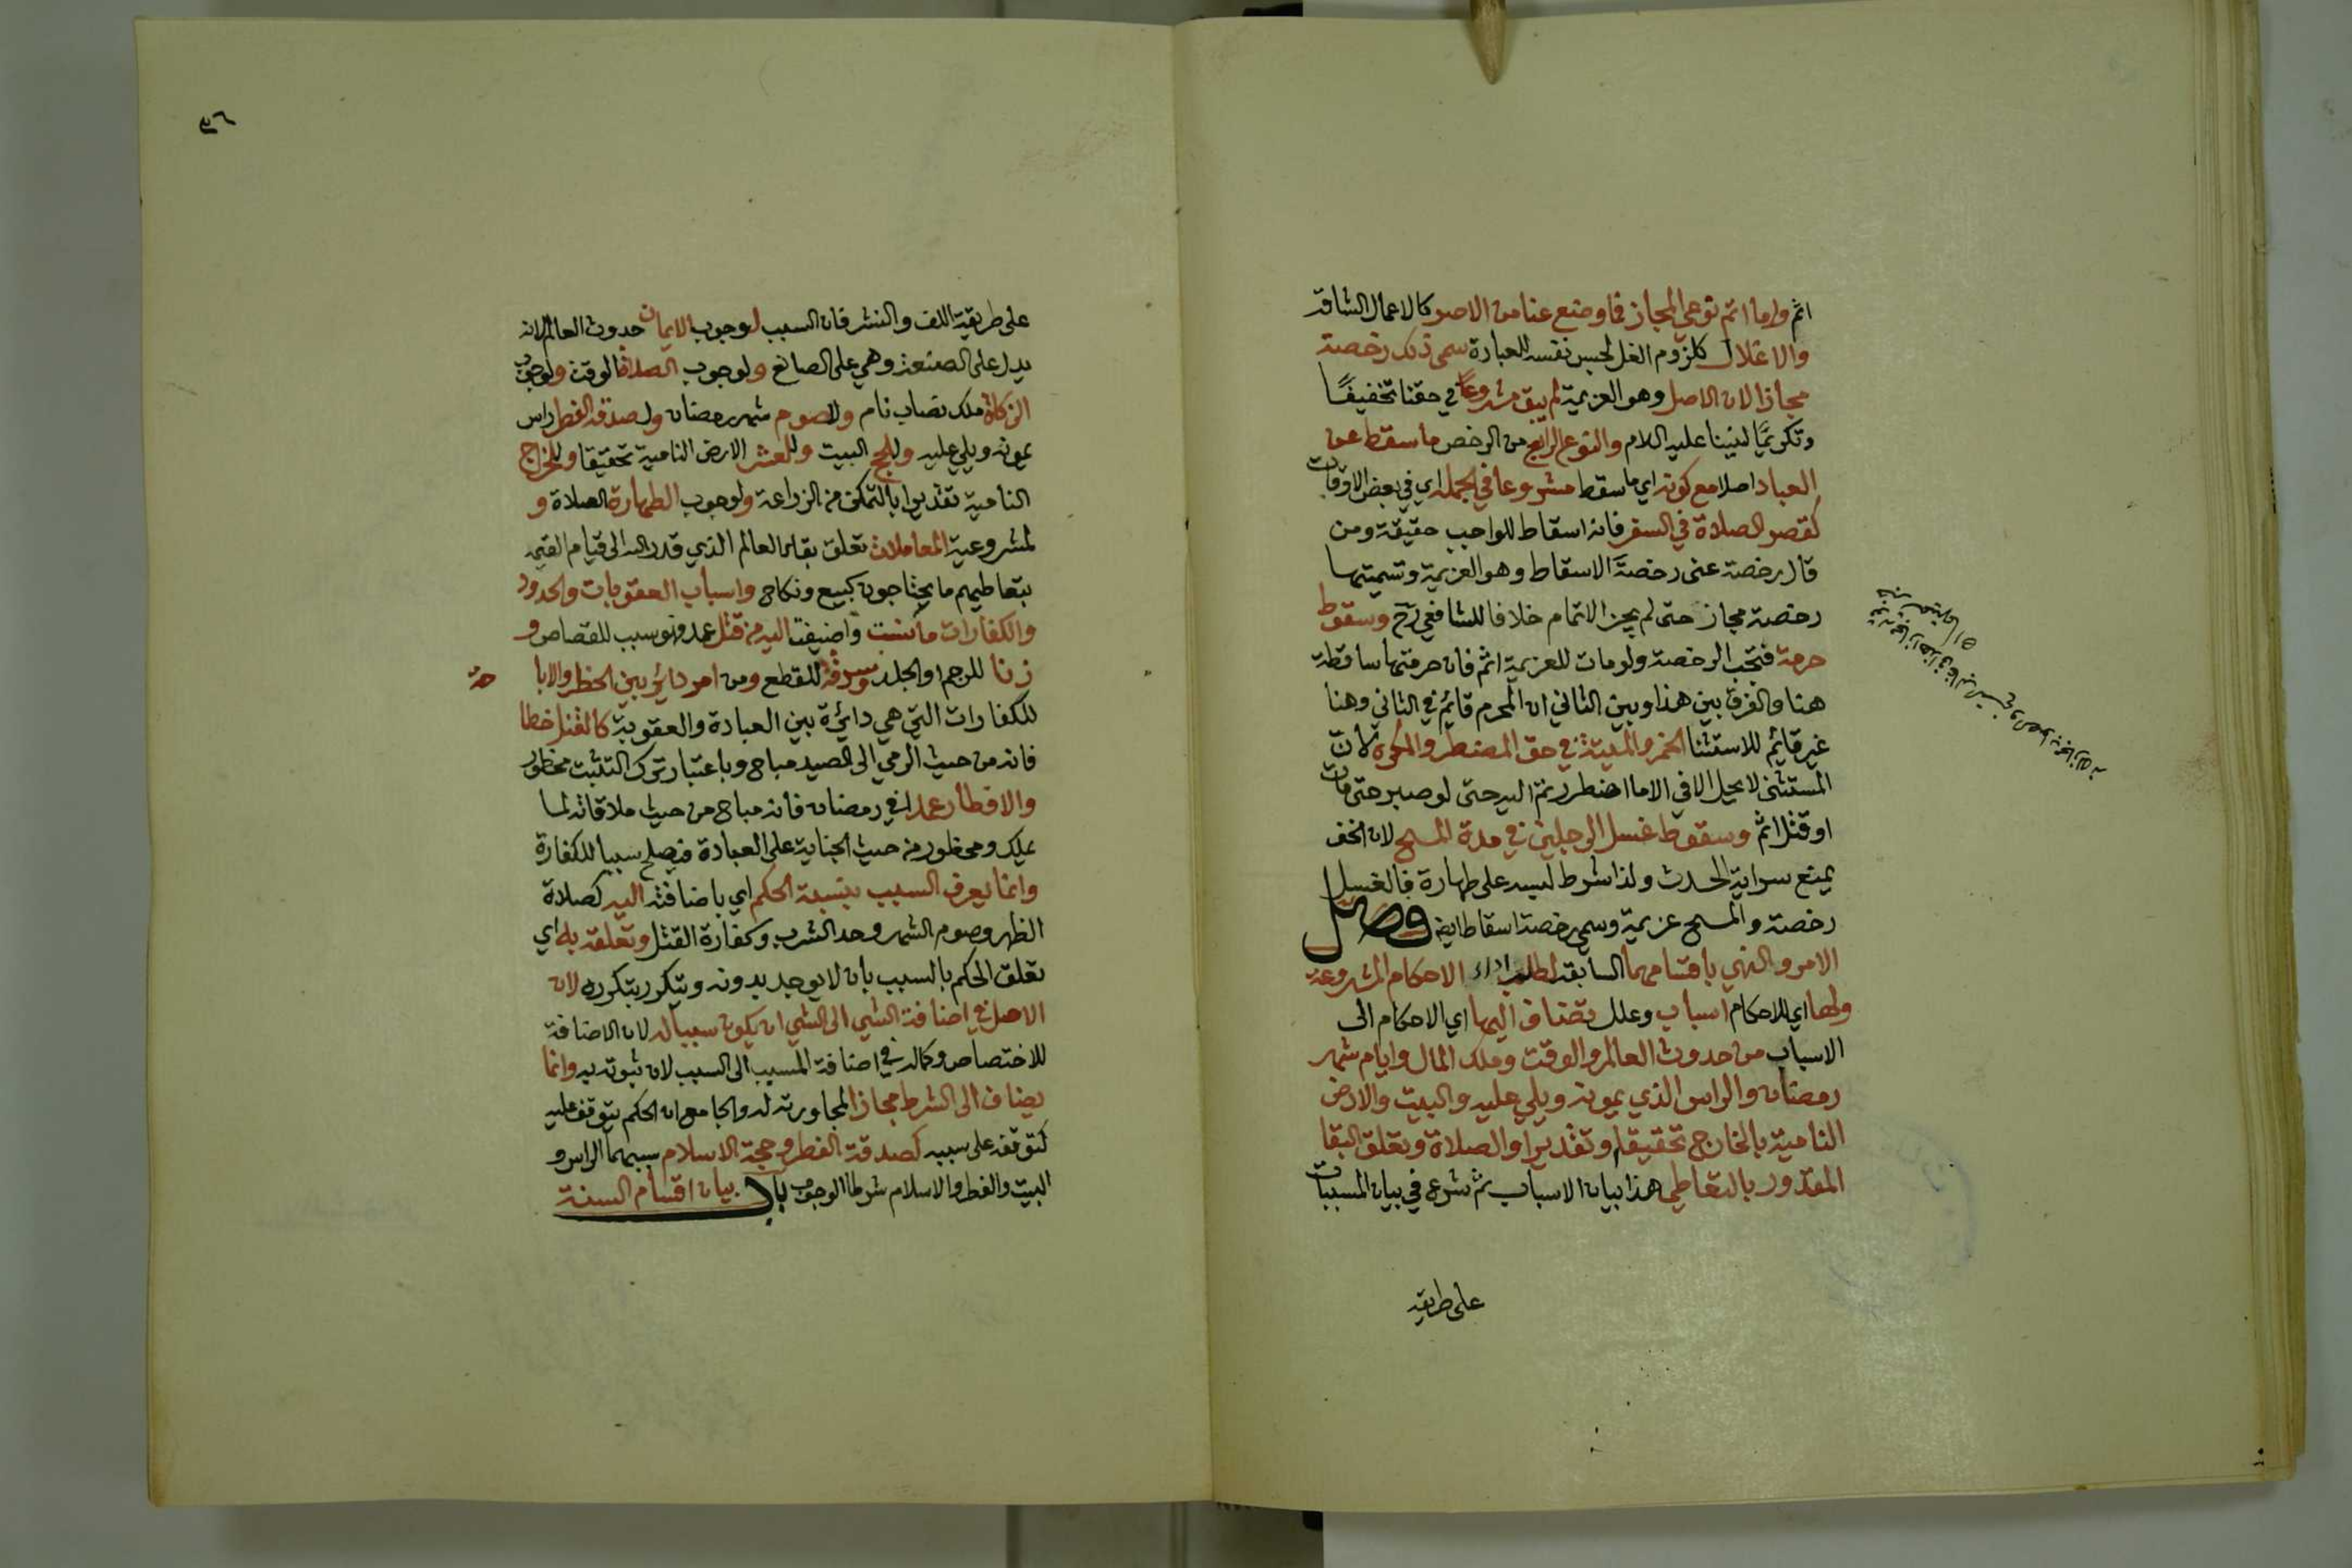 اثم واما اتم نوعي المجاز فما وضع عنا من الاصر كالاعمال الشاقة
والاغلال كلزوم الغل لحبس نفسه للعبادة سمي ذلك رخصة
مجازا لان الاصل وهو العزيمة لم يبق مشروعا في حقنا تخفيفًا
وتكريمًا لنبينا عليه السلام والنوع الرابع من الرخص ما سقط عن
العباد اصلا مع كونه اي ما سقط مشروعا في الجملة اي في بعض الاوقات
كقصر الصلاة في السفر فانه اسقاط للواجب حقيقة ومن
قال رخصة عنى رخصة الاسقاط وهو العزيمة وتسميتها
رخصة مجاز حتى لم يجز الاتمام خلافا للشافعي رح وسقوط
حرمة فتجب الرخصة ولو مات للعزيمة اثم فان حرمتها ساقطة
هنا والفرق بين هذا وبين الثاني ان المحرم قائم في الثاني وهنا
غير قائم للاستثنا الخمر والميتة في حق المضطر والمكره لان
المستثنى لا يحل الا في الاما اضطررتم اليه حتى لو صبر حتى مات
او قتل اثم وسقوط غسل الرجلين في مدة المسح لان الخف
يمنع سراية الحدث ولذا شرط لبسه على طهارة فالغسل
رخصة والمسح عزيمة وسمي رخصة اسقاط ايضا فصل
الامر والنهي باقسامهما السابقة لطلب اداء الاحكام المشروعة
ولها اي للاحكام اسباب وعلل تضاف اليها اي الاحكام الى
الاسباب من حدوث العالم والوقت وملك المال وايام شهر
رمضان والراس الذي يمونه ويلي عليه والبيت والارض
النامية بالخارج تحقيقا وتقديرا والصلاة وتعلق البقا
المقدور بالتعاطي هذا بيان الاسباب ثم شرع في بيان المسببات
على طريقة
٥٦
على طريقة اللف والنشر فان السبب لوجوب الايمان حدوث العالم لانه
يدل على الصنعة وهي على الصانع ولوجوب الصلاة الوقت ولوجوب
الزكاة ملك نصاب نام وللصوم شهر رمضان ولصدقة الفطر راس
يمونه ويلي عليه وللحج البيت وللعشر الارض النامية تحقيقا وللخراج
النامية تقديرا بالتمكن من الزراعة ولوجوب الطهارة الصلاة و
لمشروعية المعاملات تعلق بقاء العالم الذي قدر الله الى قيام القيمة
بتعاطيهم ما يحتاجون كبيع ونكاح واسباب العقوبات والحدود
والكفارات ما نسبت واضيفت اليه من قتل عمد فهو سبب للقصاص و
زنا للرجم او الجلد وسرقة للقطع ومن امر دائر بين الحظر والابا حة
للكفارات التي هي دائرة بين العبادة والعقوبة كالقتل خطا
فانه من حيث الرمي الى الصيد مباح وباعتبار ترك التثبت محظور
والافطار عمدا في رمضان فانه مباح من حيث ملاقاته لما
يملك ومحظور من حيث الجناية على العبادة فيصلح سببا للكفارة
وانما يعرف السبب بنسبة الحكم اي باضافته اليه كصلاة
الظهر وصوم الشهر وحد الشرب وكفارة القتل وتعلقه به اي
تعلق الحكم بالسبب بان لا يوجد بدونه ويتكرر بتكرره لان
الاصل في اضافة الشي الى الشي ان يكون سببا له لان الاضافة
للاختصاص وكماله في اضافة المسبب الى السبب لان ثبوته به وانما
يضاف الى الشرط مجازا لمجاورته له والجامع ان الحكم يتوقف عليه
كتوقفه على سببه كصدقة الفطر وحجة الاسلام سببهما الراس و
البيت والفطر والاسلام شرطا الوجوب باب بيان اقسام السنة